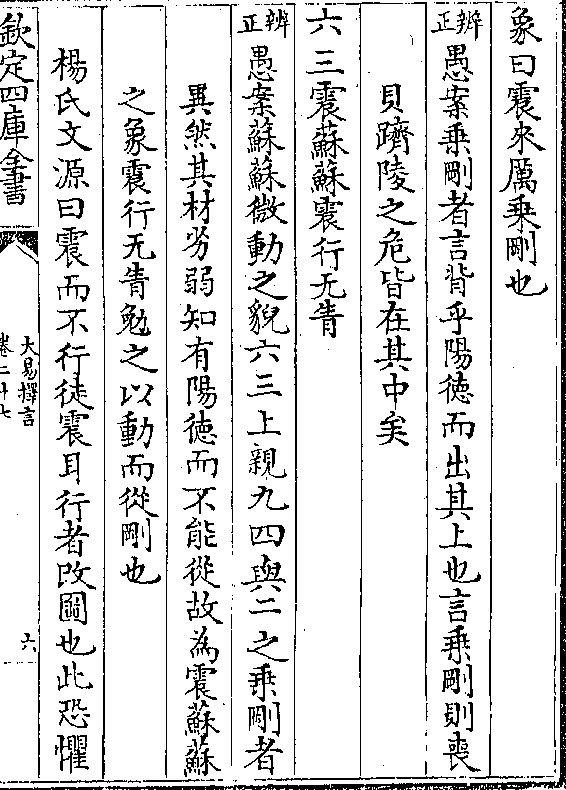 象曰震來厲乗剛也
辨正 愚案乗剛者言背乎陽徳而出其上也言乗剛則喪
貝躋陵之危皆在其中矣
六三震蘇蘇震行无眚
辨正 愚案蘇蘇微動之貌六三上親九四與二之乗剛者
異然其材劣弱知有陽徳而不能從故為震蘇蘇
之象震行无眚勉之以動而從剛也
楊氏文源曰震而不行徒震耳行者改圖也此恐懼
欽定四庫全書
大易擇言
卷二十七
六